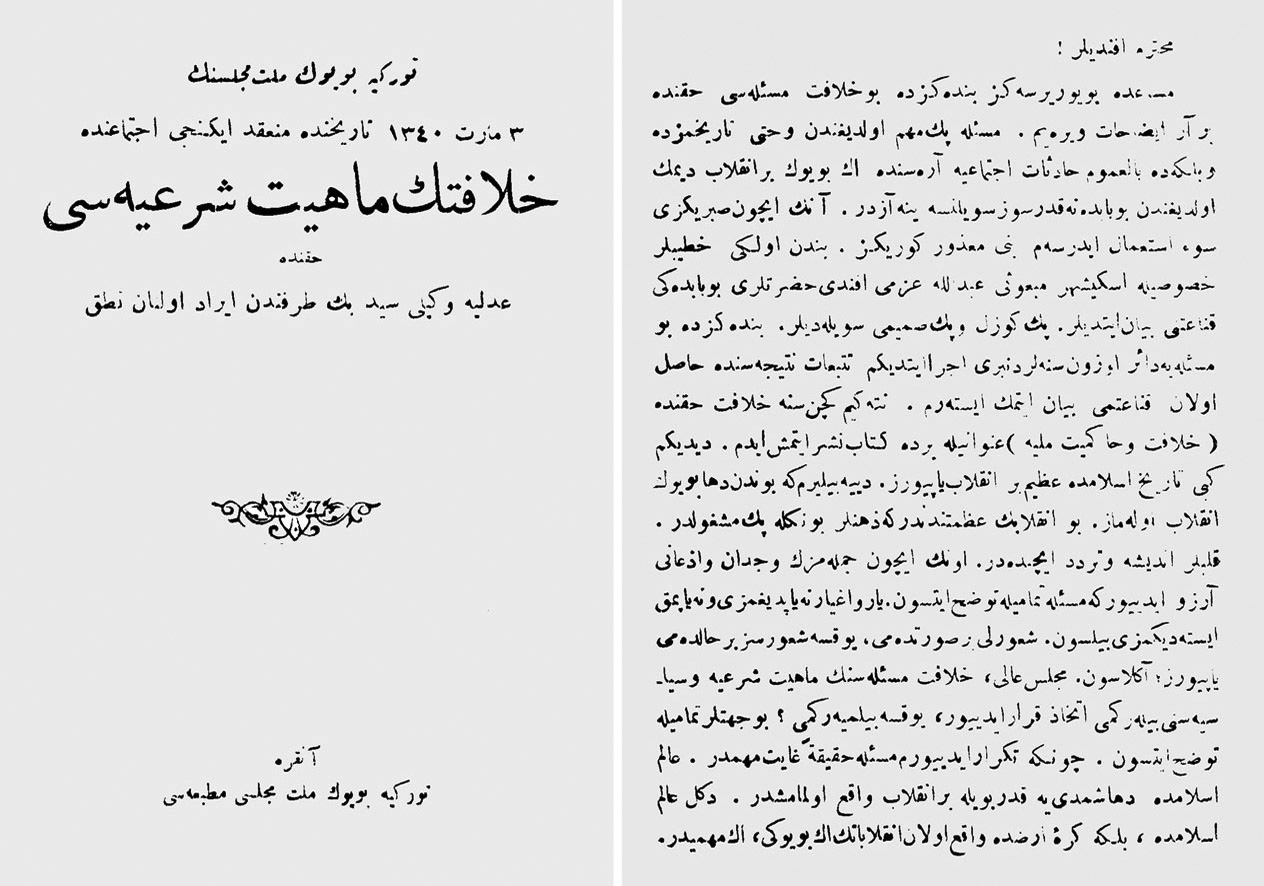 توركيه بويوك ملت مجلسنك
٣ مارت ١٣٤٠ تاريخنده منعقد ايكنجى اجتماعنده
خلافتك ماهيت شرعيه‌سى
حقنده
عدليه وكيلى سيد بك طرفندن ايراد اولنان نطق
آنقره
توركيه بويوك ملت مجلسى مطبعه‌سى
محترم افنديلر !
مساعده بويوريرسه‌كز بنده‌كزده بوخلافت مسئله‌سى حقنده
بر آز ايضاحات ويره‌يم . مسئله پك مهم اولديغندن وحتى تاريخمزده
وبلكه‌ده بالعموم حادثات اجتماعيه آره‌سنده اك بويوك بر انقلاب ديمك
اولديغندن بوبابده نه‌قدر سوز سويلنسه ينه آزدر . آنك ايچون صبريكزى
سوء استعمال ايدرسه‌م بنى معذور كوريكز . بندن اولكى خطيبلر
خصوصيله اسكيشهر مبعوثى عبدالله عزمى افندى حضرتلرى بوبابده‌كى
قناعتنى بيان ايتديلر. پك كوزل وپك صميمى سويله‌ديلر. بنده‌كزده بو
مسئله‌يه‌دائر اوزون سنه‌لردنبرى اجرا ايتديكم تتبعات نتيجه‌سنده حاصل
اولان قناعتمى بيان ايتمك ايسته‌رم . نته‌كيم كچن سنه خلافت حقنده
( خلافت وحاكميت مليه ) عنوانيله برده كتاب نشر ايتمش ايدم . ديديكم
كبى تاريخ اسلامده عظيم بر انقلاب ياپييورز. دييه‌بيليرم‌كه بوندن دها بويوك
انقلاب اوله‌ماز. بو انقلابك عظمتندندركه ذهنلر بونكله پك مشغولدر .
قلبلر انديشه وتردد ايچنده‌در. اونك ايچون جمله‌مزك وجدان واذعانى
آرزو ايدييوركه مسئله تماميله توضح ايتسون. يار واغيار نه‌ياپديغمزى ونه‌ياپمق
ايسته‌ديكمزى بيلسون. شعورلى بر صورتده‌مى، يوقسه شعورسز برحالده‌مى
ياپييورز؛ آكلاسون. مجلس عالى، خلافت مسئله‌سنك ماهيت شرعيه وسيا-
سيه‌سنى بيله‌رك‌مى اتخاذ قرار ايدييور، يوقسه بيلميه‌رك‌مى ؟ بوجهتلر تماميله
توضح ايتسون . چونكه تكرار ايدييورم مسئله حقيقةً غايت مهمدر . عالم
اسلامده دها شمدى‌يه قدر بويله بر انقلاب واقع اولمامشدر . دكل عالم
اسلامده ، بلكه كرۀ ارضده واقع اولان انقلاباتك اك بويوكى، اك مهميدر.